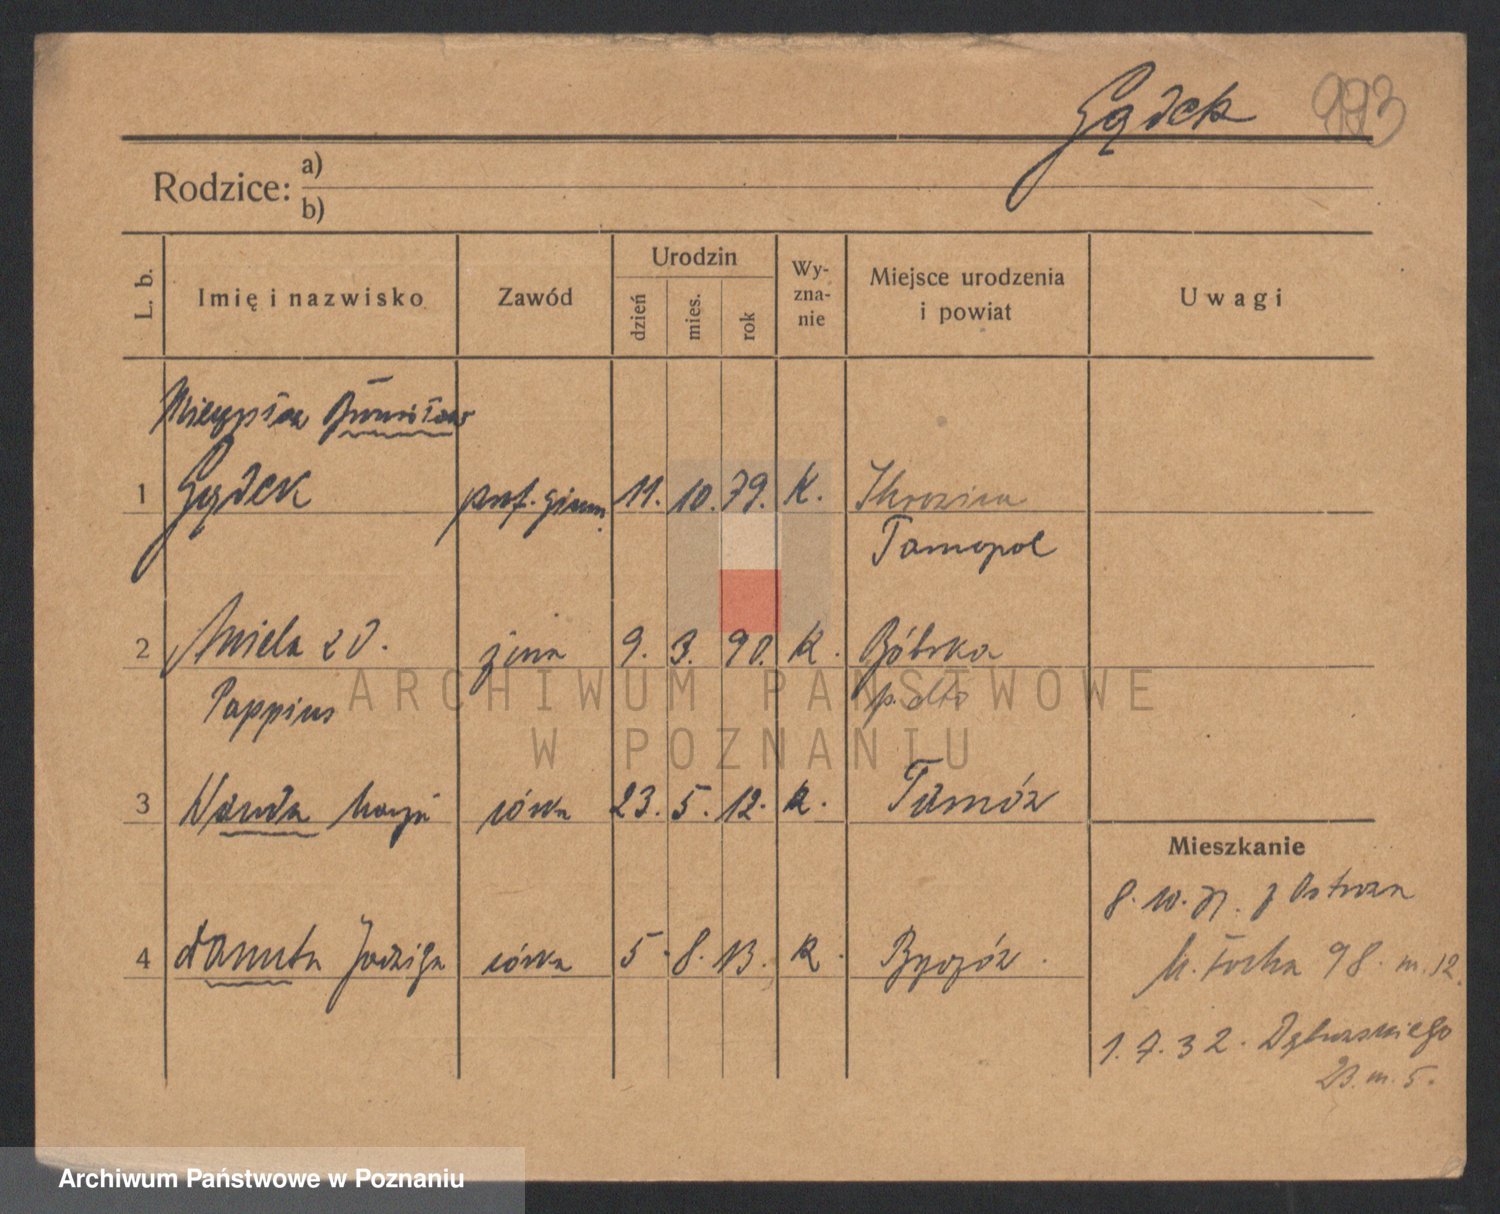 Gądek 993
Rodzice: a)
b)
L. b.
Imię i nazwisko
Zawód
Urodzin
dzień
mies.
rok
Wy-
zna-
nie
Miejsce urodzenia
i powiat
Uwagi
1 Gądek prof. gimn. 11. 10. 79. K.
Tarnopol
2 Aniela z d. żona 9. 3. 90. K. Bóbrka
Pappius p. dto
3 Wanda Marja córka 23. 5. 12. K. Tarnów
4 Danuta Jadwiga córka 5. 8. 13. K.
Mieszkanie
8. 10. z Ostroga
98. m. 12.
1. 7. 32. Dąbrowskiego
23. m. 5.
ARCHIWUM PAŃSTWOWE
W POZNANIU
Archiwum Państwowe w Poznaniu